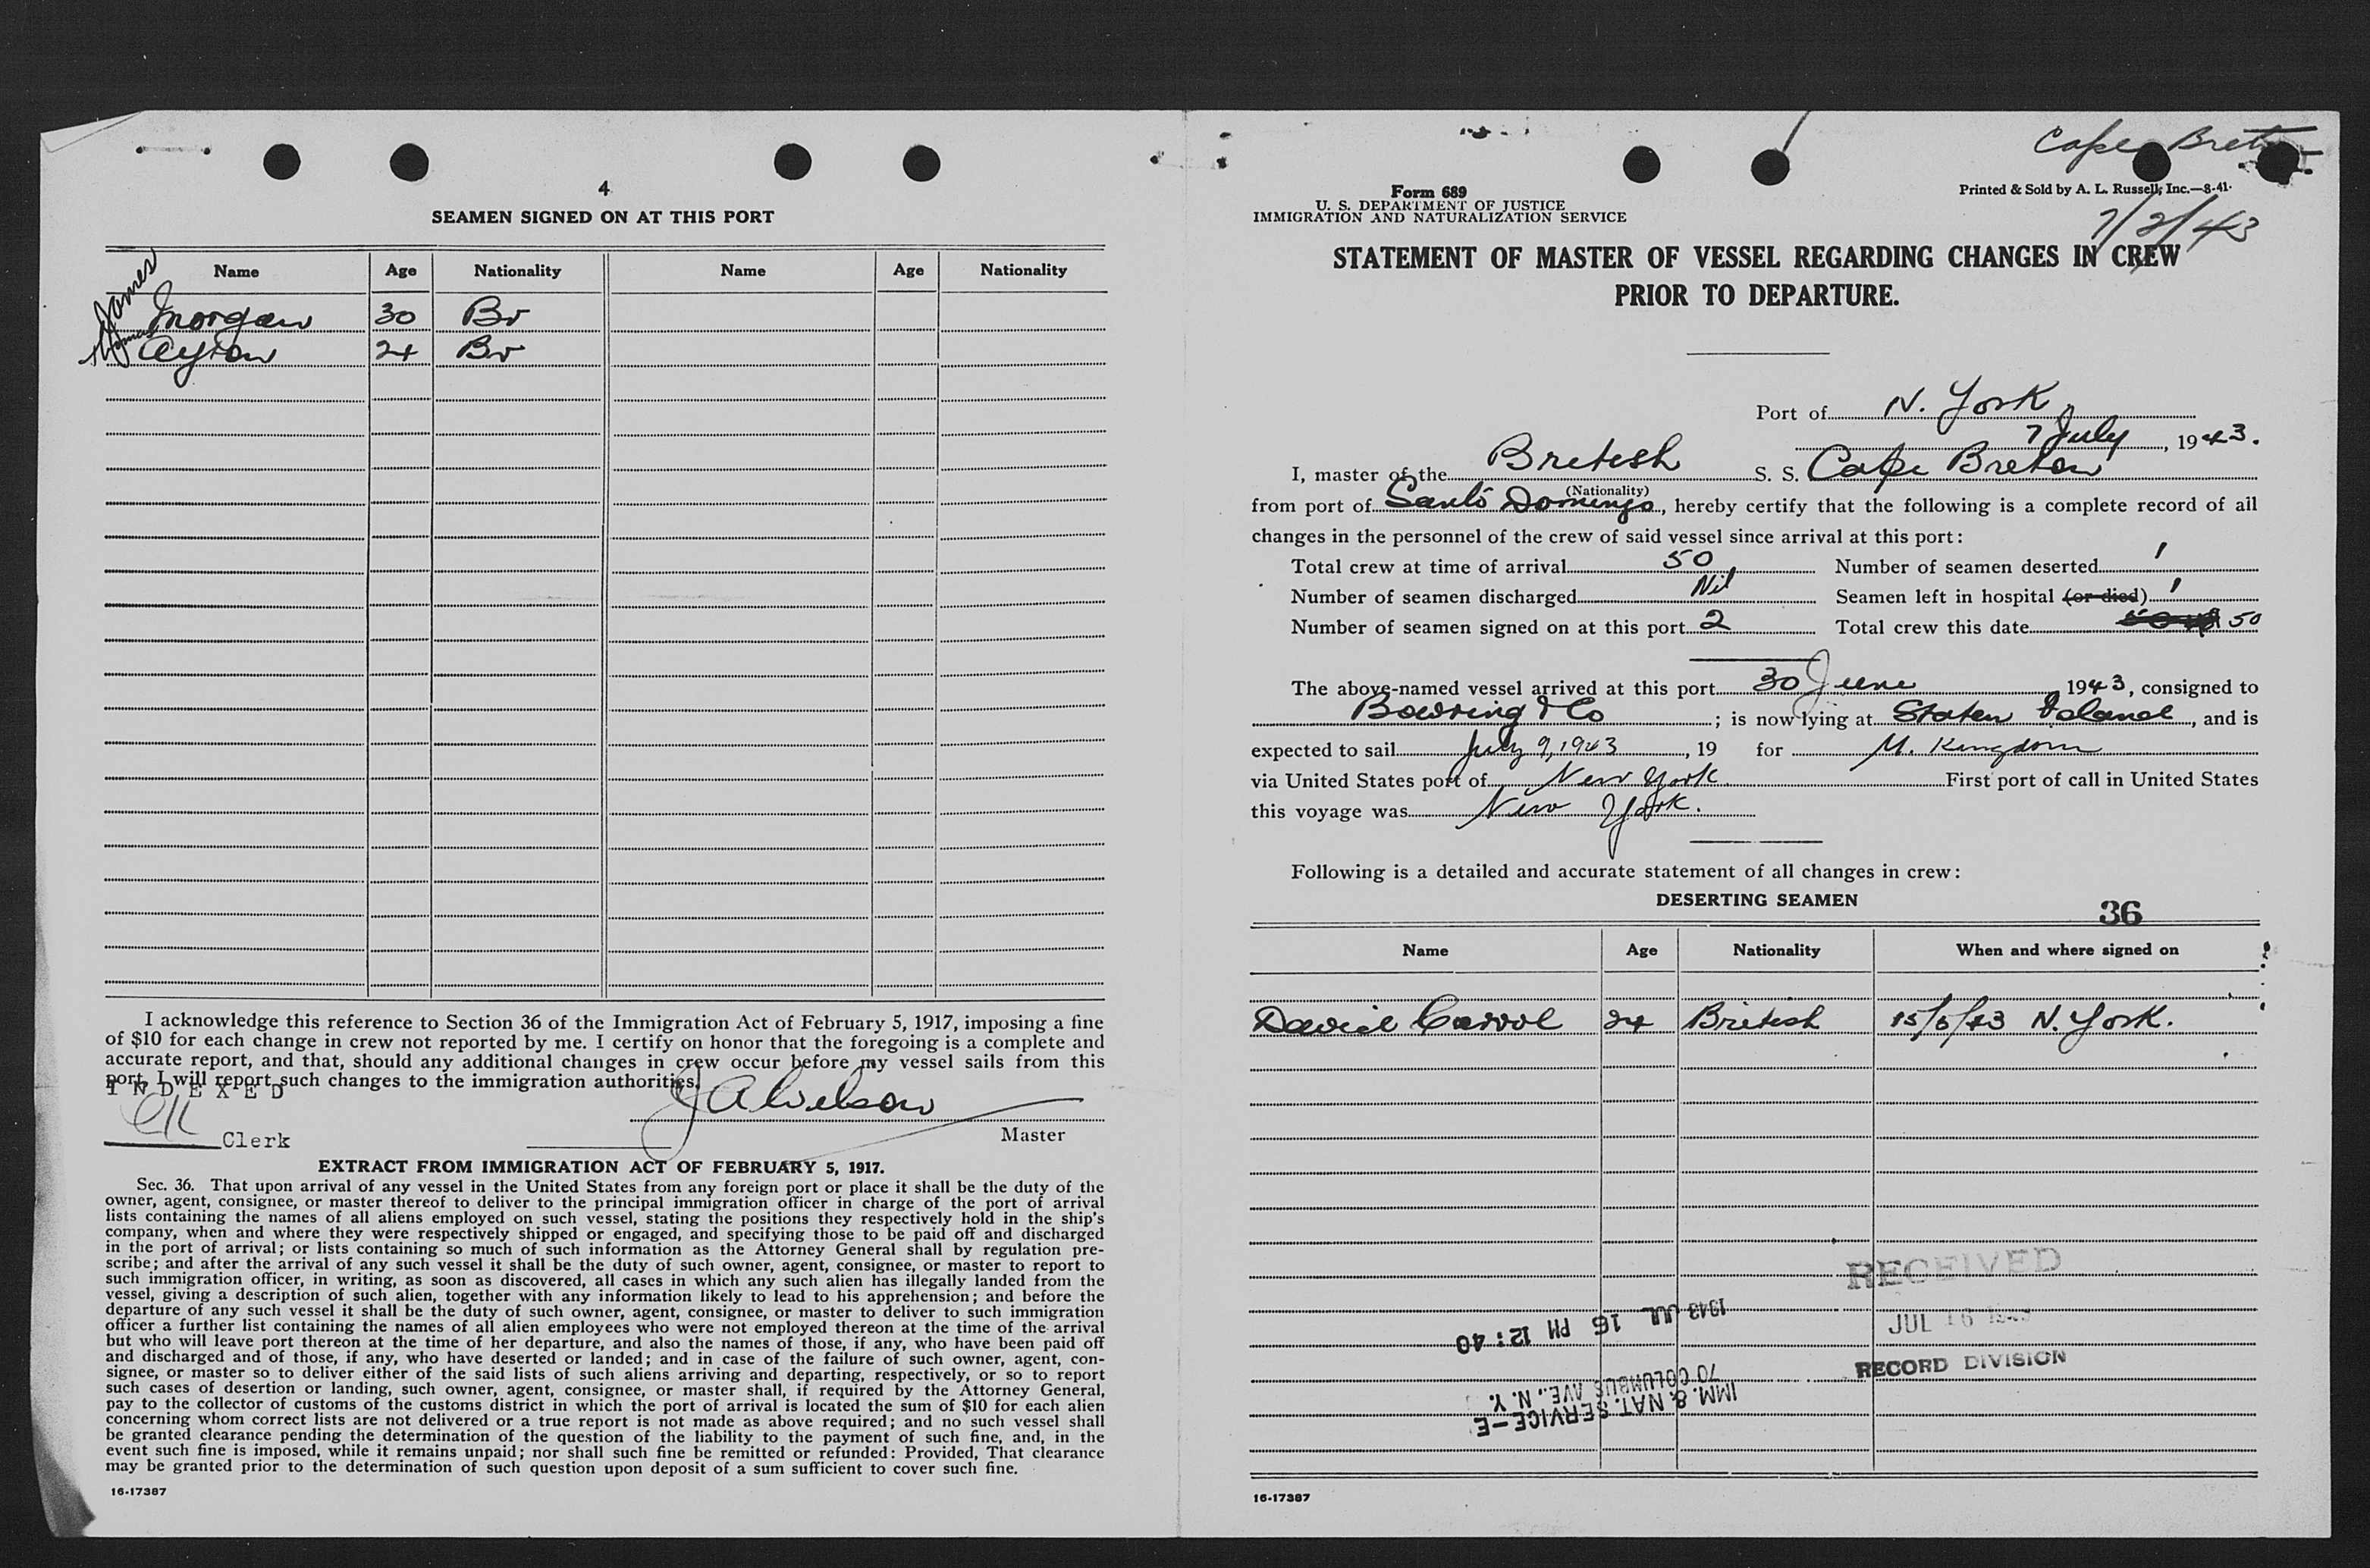 4
SEAMEN SIGNED ON AT THIS PORT
Name Age Nationality Name Age Nationality
James Morgan 30 Br
Thomas 24 Br
I acknowledge this reference to Section 36 of the Immigration Act of February 5, 1917, imposing a fine
of $10 for each change in crew not reported by me. I certify on honor that the foregoing is a complete and
accurate report, and that, should any additional changes in crew occur before my vessel sails from this
port, I will report such changes to the immigration authorities.
INDEXED
J A Wilson
Clerk
Master
EXTRACT FROM IMMIGRATION ACT OF FEBRUARY 5, 1917.
Sec. 36. That upon arrival of any vessel in the United States from any foreign port or place it shall be the duty of the
owner, agent, consignee, or master thereof to deliver to the principal immigration officer in charge of the port of arrival
lists containing the names of all aliens employed on such vessel, stating the positions they respectively hold in the ship's
company, when and where they were respectively shipped or engaged, and specifying those to be paid off and discharged
in the port of arrival; or lists containing so much of such information as the Attorney General shall by regulation pre-
scribe; and after the arrival of any such vessel it shall be the duty of such owner, agent, consignee, or master to report to
such immigration officer, in writing, as soon as discovered, all cases in which any such alien has illegally landed from the
vessel, giving a description of such alien, together with any information likely to lead to his apprehension; and before the
departure of any such vessel it shall be the duty of such owner, agent, consignee, or master to deliver to such immigration
officer a further list containing the names of all alien employees who were not employed thereon at the time of the arrival
but who will leave port thereon at the time of her departure, and also the names of those, if any, who have been paid off
and discharged and of those, if any, who have deserted or landed; and in case of the failure of such owner, agent, con-
signee, or master so to deliver either of the said lists of such aliens arriving and departing, respectively, or so to report
such cases of desertion or landing, such owner, agent, consignee, or master shall, if required by the Attorney General,
pay to the collector of customs of the customs district in which the port of arrival is located the sum of $10 for each alien
concerning whom correct lists are not delivered or a true report is not made as above required; and no such vessel shall
be granted clearance pending the determination of the question of the liability to the payment of such fine, and, in the
event such fine is imposed, while it remains unpaid; nor shall such fine be remitted or refunded: Provided, That clearance
may be granted prior to the determination of such question upon deposit of a sum sufficient to cover such fine.
16-17387
Cape Breton
Form 689
U. S. DEPARTMENT OF JUSTICE
IMMIGRATION AND NATURALIZATION SERVICE
Printed & Sold by A. L. Russell, Inc.—8-41.
7/2/43
STATEMENT OF MASTER OF VESSEL REGARDING CHANGES IN CREW
PRIOR TO DEPARTURE.
Port of N. York
7 July, 1943.
I, master of the British S. S. Cape Breton
(Nationality)
from port of Santo Domingo, hereby certify that the following is a complete record of all
changes in the personnel of the crew of said vessel since arrival at this port:
Total crew at time of arrival 50 Number of seamen deserted 1
Number of seamen discharged Nil Seamen left in hospital (or died) 1
Number of seamen signed on at this port 2 Total crew this date 50
The above-named vessel arrived at this port 30 June 1943, consigned to
Bowring & Co; is now lying at Staten Island, and is
expected to sail July 9, 1943, 19 for U. Kingdom
via United States port of New York First port of call in United States
this voyage was New York.
Following is a detailed and accurate statement of all changes in crew:
DESERTING SEAMEN
36
Name Age Nationality When and where signed on
David Carrol 24 British 15/5/43 N. York.
RECEIVED
JUL 16 1943
RECORD DIVISION
1943 JUL 16 PM 12:40
70 COLUMBUS AVE., N. Y.
IMM. & NAT. SERVICE-E
16-17387